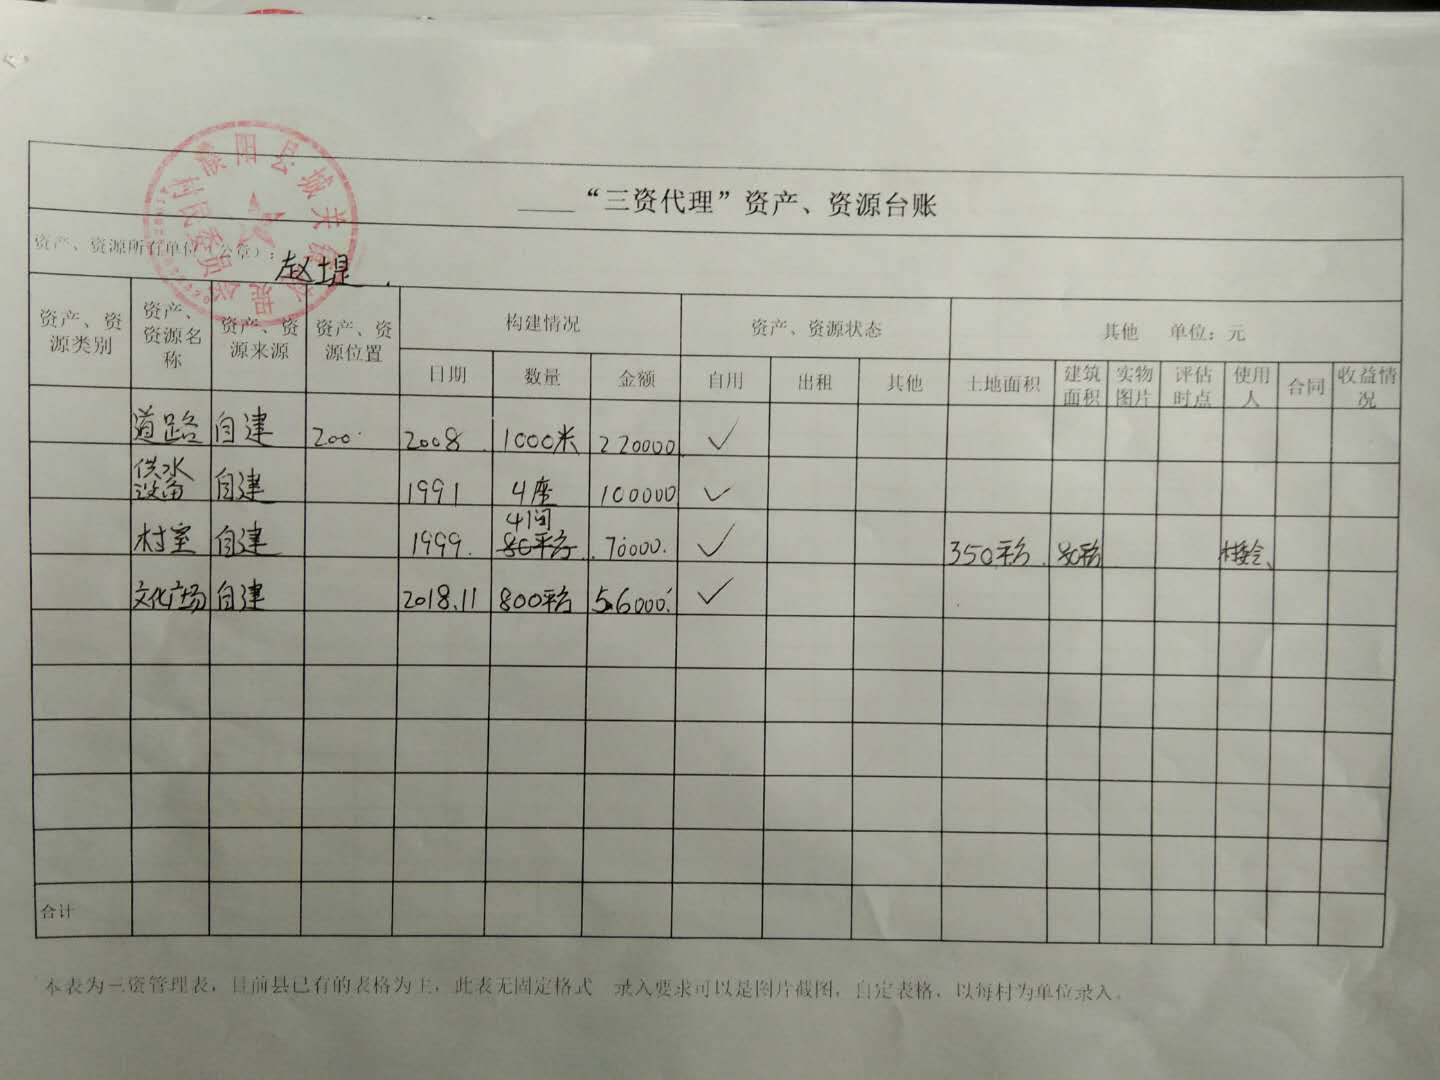 濮阳县城关镇赵堤村民委员会
____“三资代理”资产、资源台账
资产、资源所有单位（公章）：赵堤
资产、资源类别 资产、资源名称 资产、资源来源 资产、资源位置 构建情况 资产、资源状态 其他 单位：元
日期 数量 金额 自用 出租 其他 土地面积 建筑面积 实物图片 评估时点 使用人 合同 收益情况
道路 自建 200 2008 1000米 220000 ✓
供水设备 自建 1991 4座 100000 ✓
村室 自建 1999 4间 80平方 70000 ✓ 350平方 80平方 村委会
文化广场 自建 2018.11 800平方 56000 ✓
合计
本表为三资管理表，目前县已有的表格为主，此表无固定格式 录入要求可以是图片截图，自定表格，以每村为单位录入。